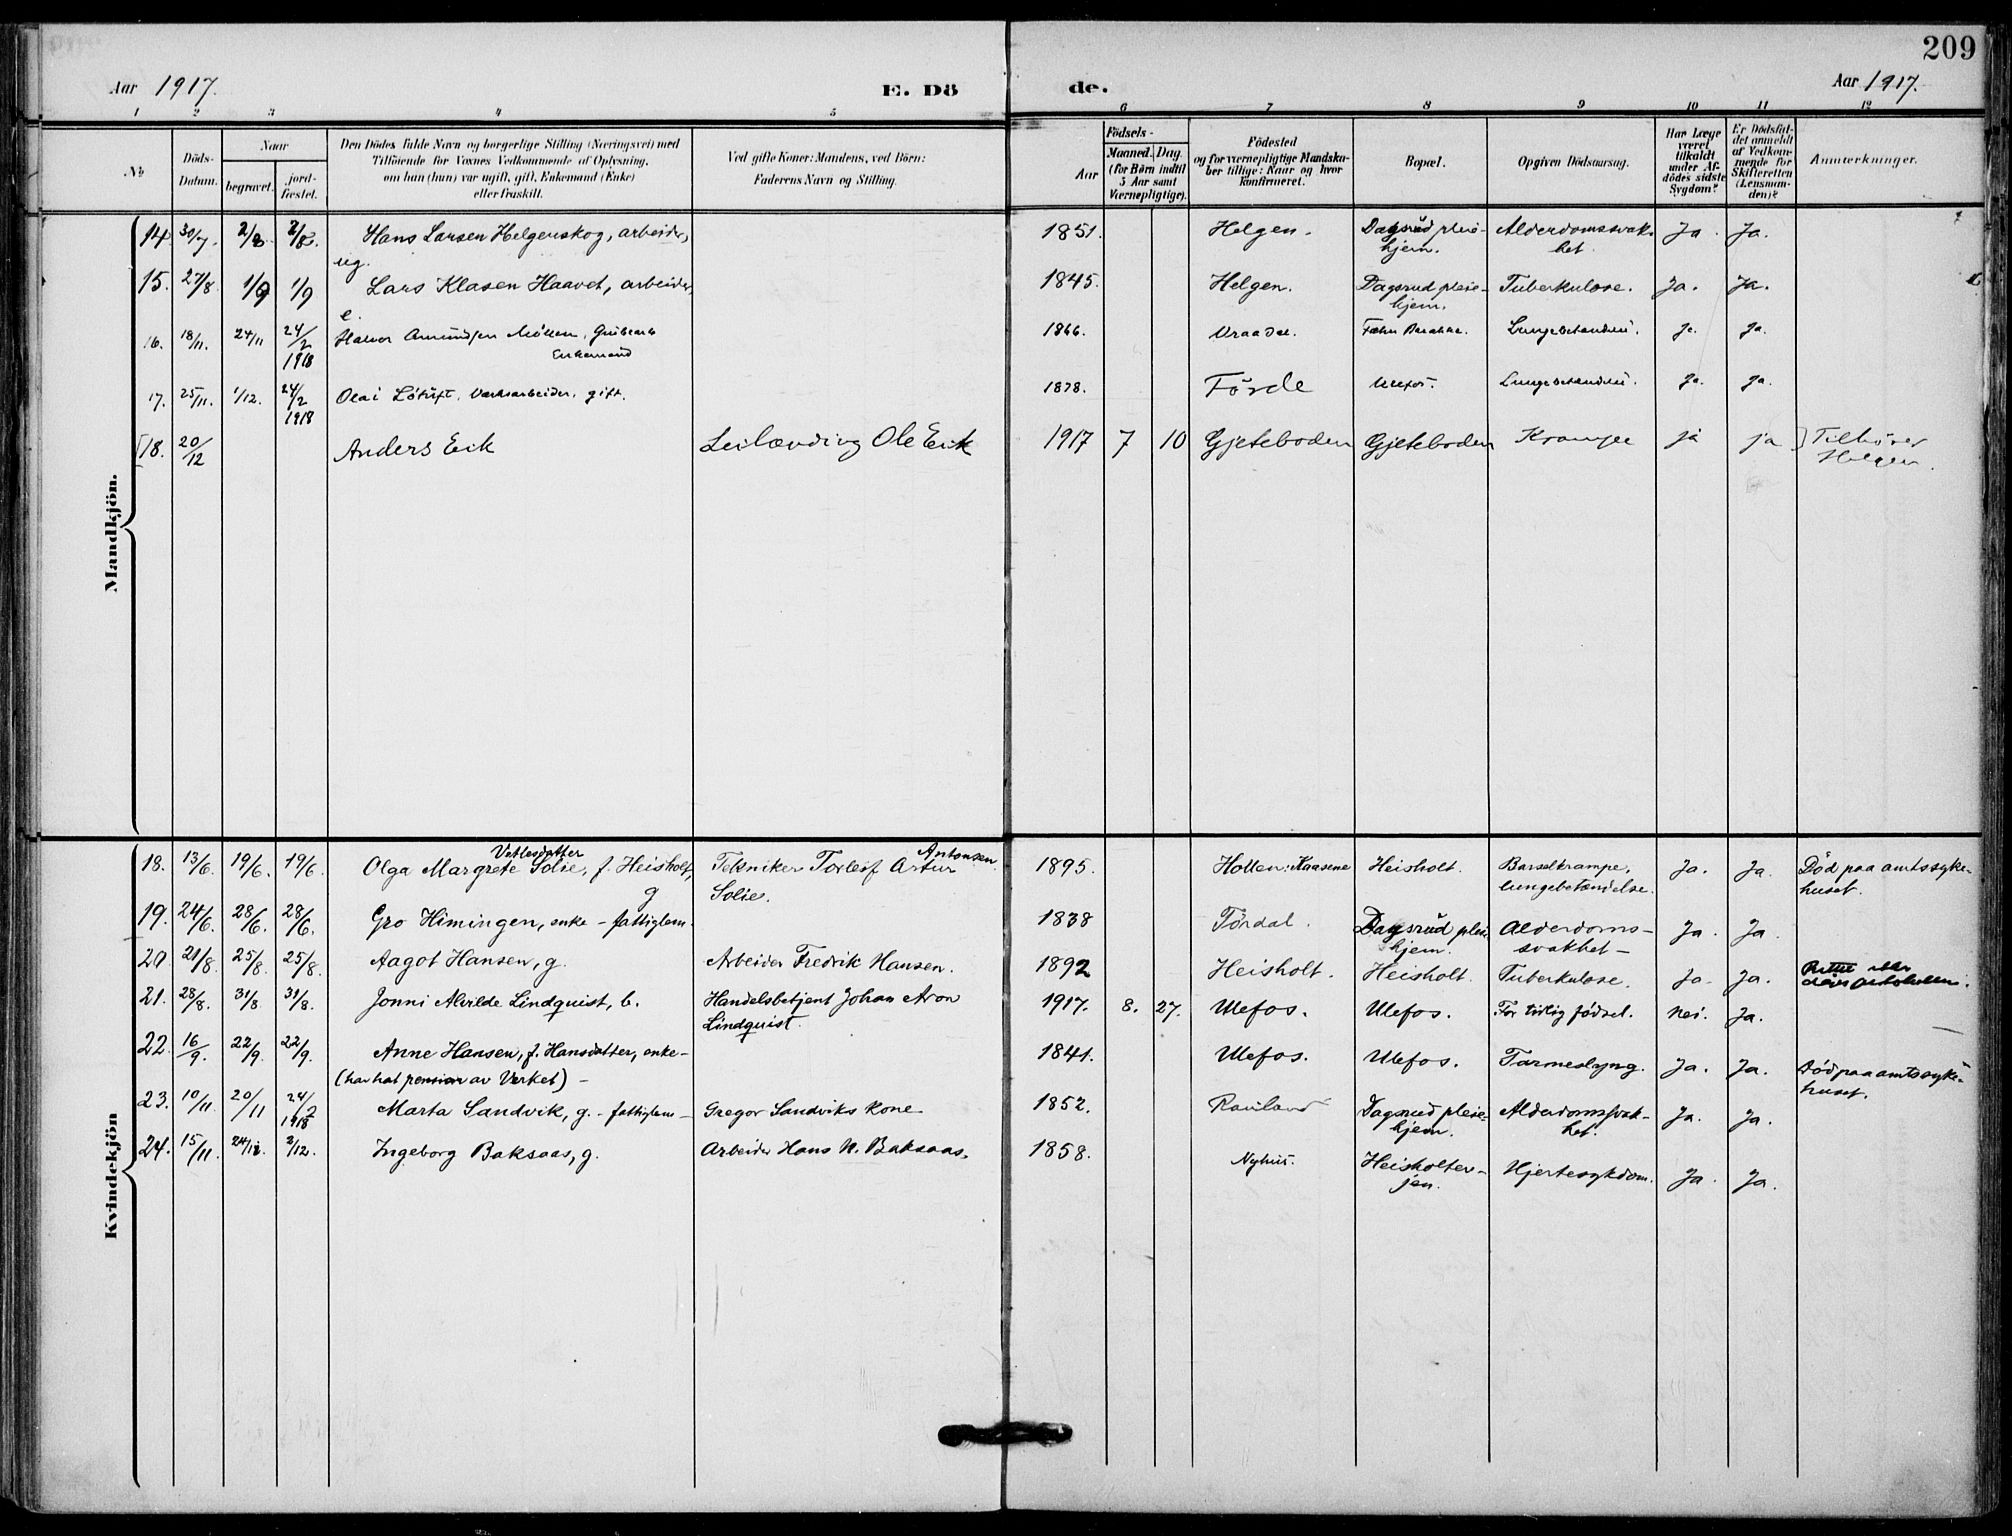 209
Aar 1917.
E. Dö
de.
Aar 1917.
1 2 3 4 5 6 7 8 9 10 11 12
№
Döds-Datum.
Naar
begravet.
jord-fæstet.
Den Dödes fulde Navn og borgerlige Stilling (Næringsvei) med
Tilföiende for Voxnes Vedkommende af Oplysning,
om han (hun) var ugift, gift, Enkemand (Enke)
eller fraskilt.
Ved gifte Koner: Mandens, ved Börn:
Faderens Navn og Stilling.
Födsels-
Aar
Maaned. Dag.
(for Börn indtil
5 Aar samt
Værnepligtige).
Födested
og for værnepligtige Mandska-
ber tillige: Naar og hvor
konfirmeret.
Bopæl.
Opgiven Dödsaarsag.
Har Læge
været
tilkaldt
under Af-
dödes sidste
Sygdom?
Er Dödsfal-
det anmeldt
af Vedkom-
mende for
Skifteretten
(Lensman-
den)?
Anmærkninger.
Mandkjön.
14. 30/7. 2/8. 2/8. Hans Larsen Helgenskog, arbeider, 1851. Helgen. Dagsrud pleie- Alderdomssvak- Ja. Ja.
ug. hjem. het.
15. 27/8. 1/9 1/9 Lars Klasen Haavet, arbeider, 1845. Helgen. Dagsrud pleie- Tuberkulose. Ja. Ja.
e. hjem.
16. 18/11. 24/11 24/2 1918 Halvor Amundsen Möllen, 1866. Vraadal. Lungebetændelse. Ja. Ja.
Enkemand
17. 25/11. 1/12. 24/2 1918 Olai Lötuft, Verksarbeider, gift. 1878. Förde Ulefos. Lungebetændelse. Ja. Ja.
18. 20/12 Anders Eik Leilænding Ole Eik 1917 7 10 Gjeteboden Gjeteboden Krampe ja ja Tilhörer
Helgen.
Kvindekjön
18. 13/6. 19/6. 19/6. Olga Margrete Vetlesdatter Solie, f. Heisholt, Tekniker Torleif Artur Antonsen 1895. Hollen: Kaasene Heisholt. Barselkrampe, Ja. Ja. Död paa amtssyke-
g Solie. lungebetændelse. huset.
19. 24/6. 28/6. 28/6. Gro Himingen, enke - fattiglem. 1838 Tördal. Dagsrud pleie- Alderdoms- Ja. Ja.
hjem. svakhet -
20. 21/8. 25/8. 25/8. Aagot Hansen, g. Arbeider Fredrik Hansen. 1892 Heisholt. Heisholt. Tuberkulose. Ja. Ja.
21. 28/8. 31/8. 31/8. Jonni Alvilde Lindquist, b. Handelsbetjent Johan Aron 1917. 8. 27. Ulefos. Ulefos. For tidlig födsel. nei. Ja.
Lindquist.
22. 16/9. 22/9. 22/9. Anne Hansen, f. Hansdatter, enke - 1841. Ulefos. Ulefos. Tarmeslyng. Ja. Ja. Död paa amtssyke-
(har hat pension av Verket) - huset.
23. 10/11. 20/11 24/2 1918 Marta Sandvik, g. - fattiglem - Gregor Sandviks kone. 1852. Rauland Dagsrud pleie- Alderdomssvak- Ja. Ja.
hjem. het.
24. 15/11. 24/12. 2/12. Ingeborg Baksaas, g. Arbeider Hans N. Baksaas. 1858. Nyhus. Heisholter- Hjertesykdom. Ja. Ja.
jen.